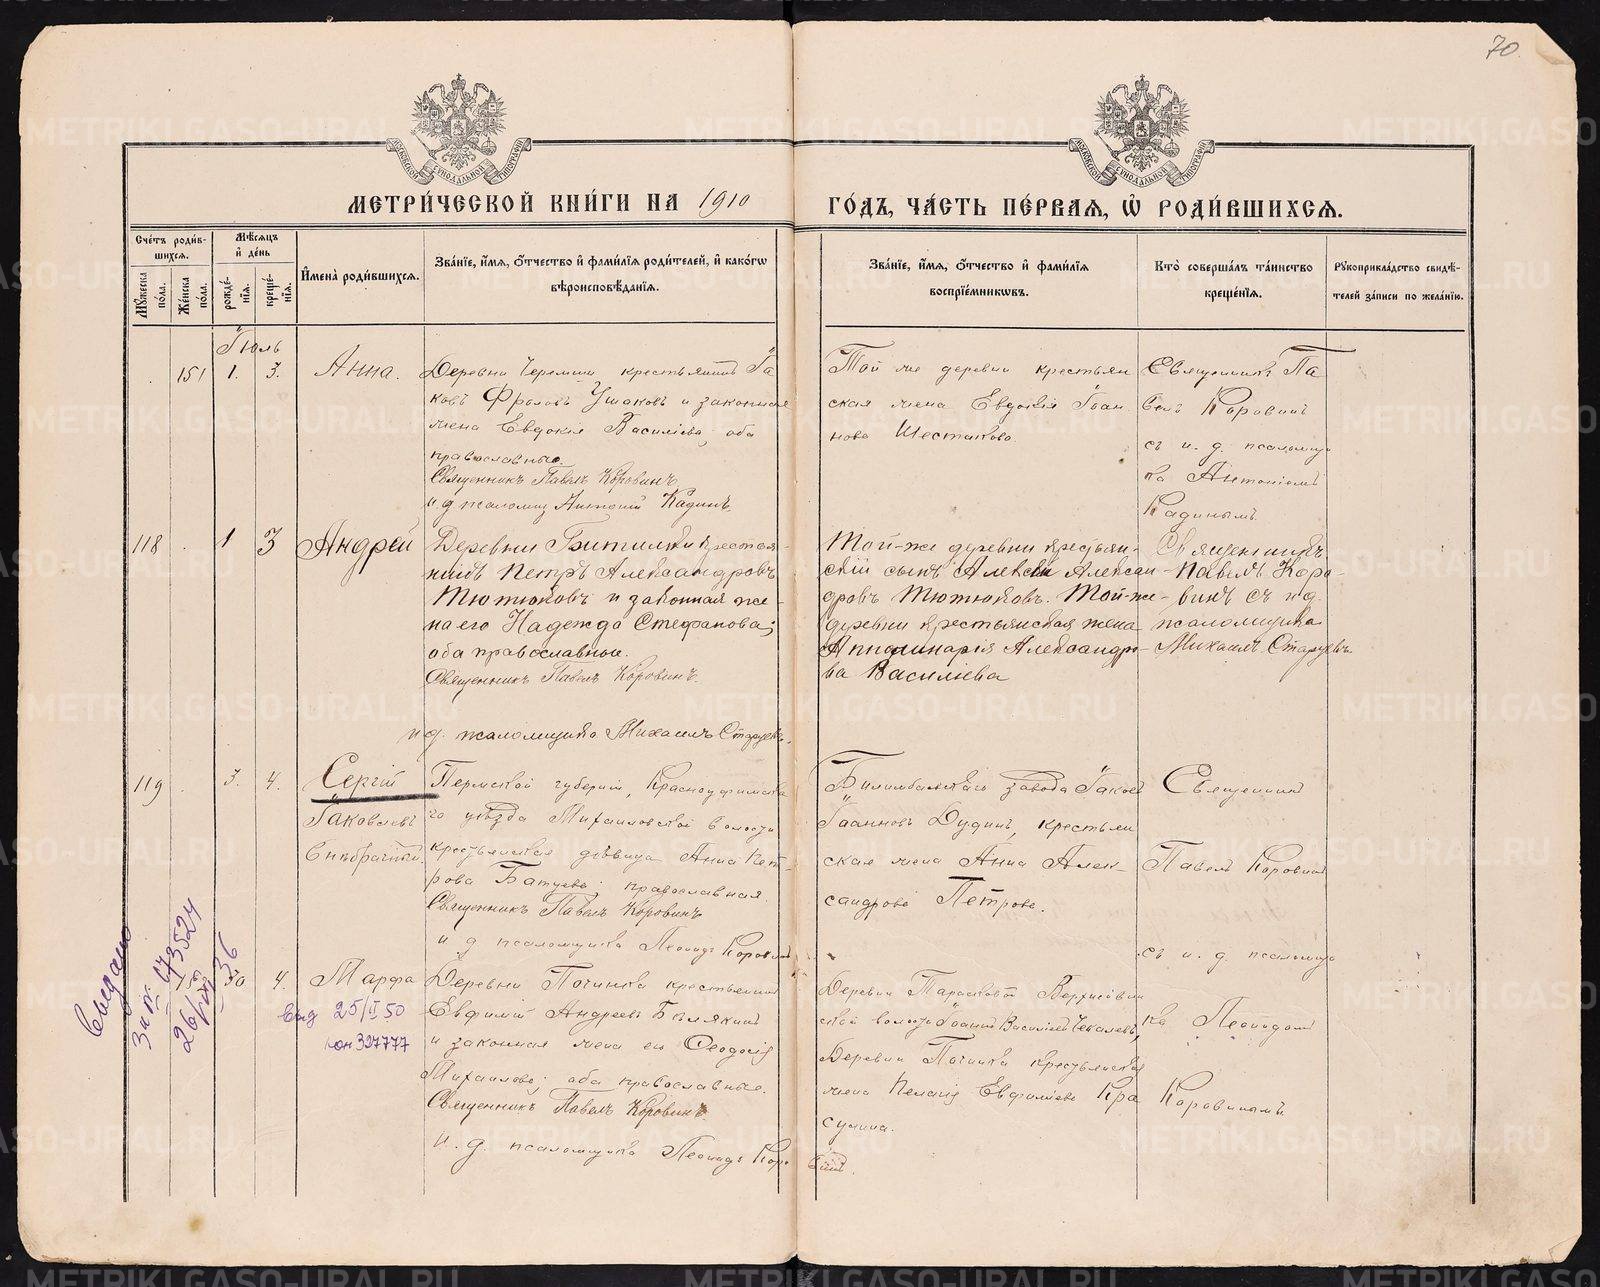 70
МОСКОВСКОЙ СѴНОДАЛЬНОЙ ТИПОГРАФІИ
МОСКОВСКОЙ СѴНОДАЛЬНОЙ ТИПОГРАФІИ
МЕТРИ́ЧЕСКОЙ КНИ́ГИ НА 1910 ГО́ДЪ, ЧА́СТЬ ПЕ́РВАѦ, Ѡ҆ РОДИ́ВШИХСѦ.
Сче́тъ роди́в-
шихсѧ.
Мꙋ́жеска по́ла.
Же́нска по́ла.
Мѣ́сѧцъ
и҆ де́нь
рожде́-
нїѧ.
креще́-
нїѧ.
И҆мена̀ роди́вшихсѧ.
Зва́нїе, и҆́мѧ, ѻ҆́тчество и҆ фами́лїѧ роди́телей, и҆ како́гѡ
вѣроисповѣ́данїѧ.
Зва́нїе, и҆́мѧ, ѻ҆́тчество и҆ фами́лїѧ
воспрїе́мникѡвъ.
Кто̀ соверша́лъ та́инство
креще́нїѧ.
Рꙋкоприкла́дство свидѣ́-
телей за́писи по жела́нїю.
Іюль
151 1. 3. Анна.
Деревни Черемши крестьянинъ Іа
ковъ Фроловъ Ушаковъ и законная
жена Евдокія Василіева, оба
православные.
Священникъ Павелъ Коровинъ
и. д. псаломщ Антоній Кадинъ
Той же деревни крестьян
ская жена Евдокія Іоан
нова Шестакова
Священникъ Па
велъ Коровинъ
съ и. д. псаломщи
ка Антоніемъ
Кадинымъ.
118 1 3 Андрей
Деревни Битимки крестья-
нинъ Петръ Александровъ
Тютюковъ и законная же-
на его Надежда Стефанова;
оба православные.
Священникъ Павелъ Коровинъ.
и д. псаломщика Михаилъ
Той-же деревни крестьян-
скій сынъ Алексѣй Алексан-
дровъ Тютюковъ. Той-же
деревни крестьянская жена
Апполинарія Александро-
ва Василіева
Священникъ
Павелъ Коро-
винъ съ и д.
псаломщика
Михаилъ
119 3. 4. Сергій
Іаковлевъ
внебрачный.
Пермской губерніи, Красноуфимска
го уѣзда Михайловской волости
крестьянская дѣвица Анна Пет
рова Батуева; православная.
Священникъ Павелъ Коровинъ
и д псаломщика Леонидъ Коровинъ
Билимбаевскаго завода Іаковъ
Іоанновъ Дудинъ, крестьян
ская жена Анна Алек-
сандрова Петрова.
Священникъ
Павелъ Коровинъ
съ и. д. псаломщи
ка Леонидомъ
Коровинымъ
30 4. Марфа
25/I 50
327777
Деревни Починка крестьянинъ
Евфимій Андреевъ Бѣлякинъ
и законная жена его Ѳеодосія
Михаилова; оба православные.
Священникъ Павелъ Коровинъ.
и. д. псаломщика Леонидъ Коро
винъ.
Деревни Починка крестьянская
жена Пелагія Евфиміева
METRIKI.GASO-URAL.RU